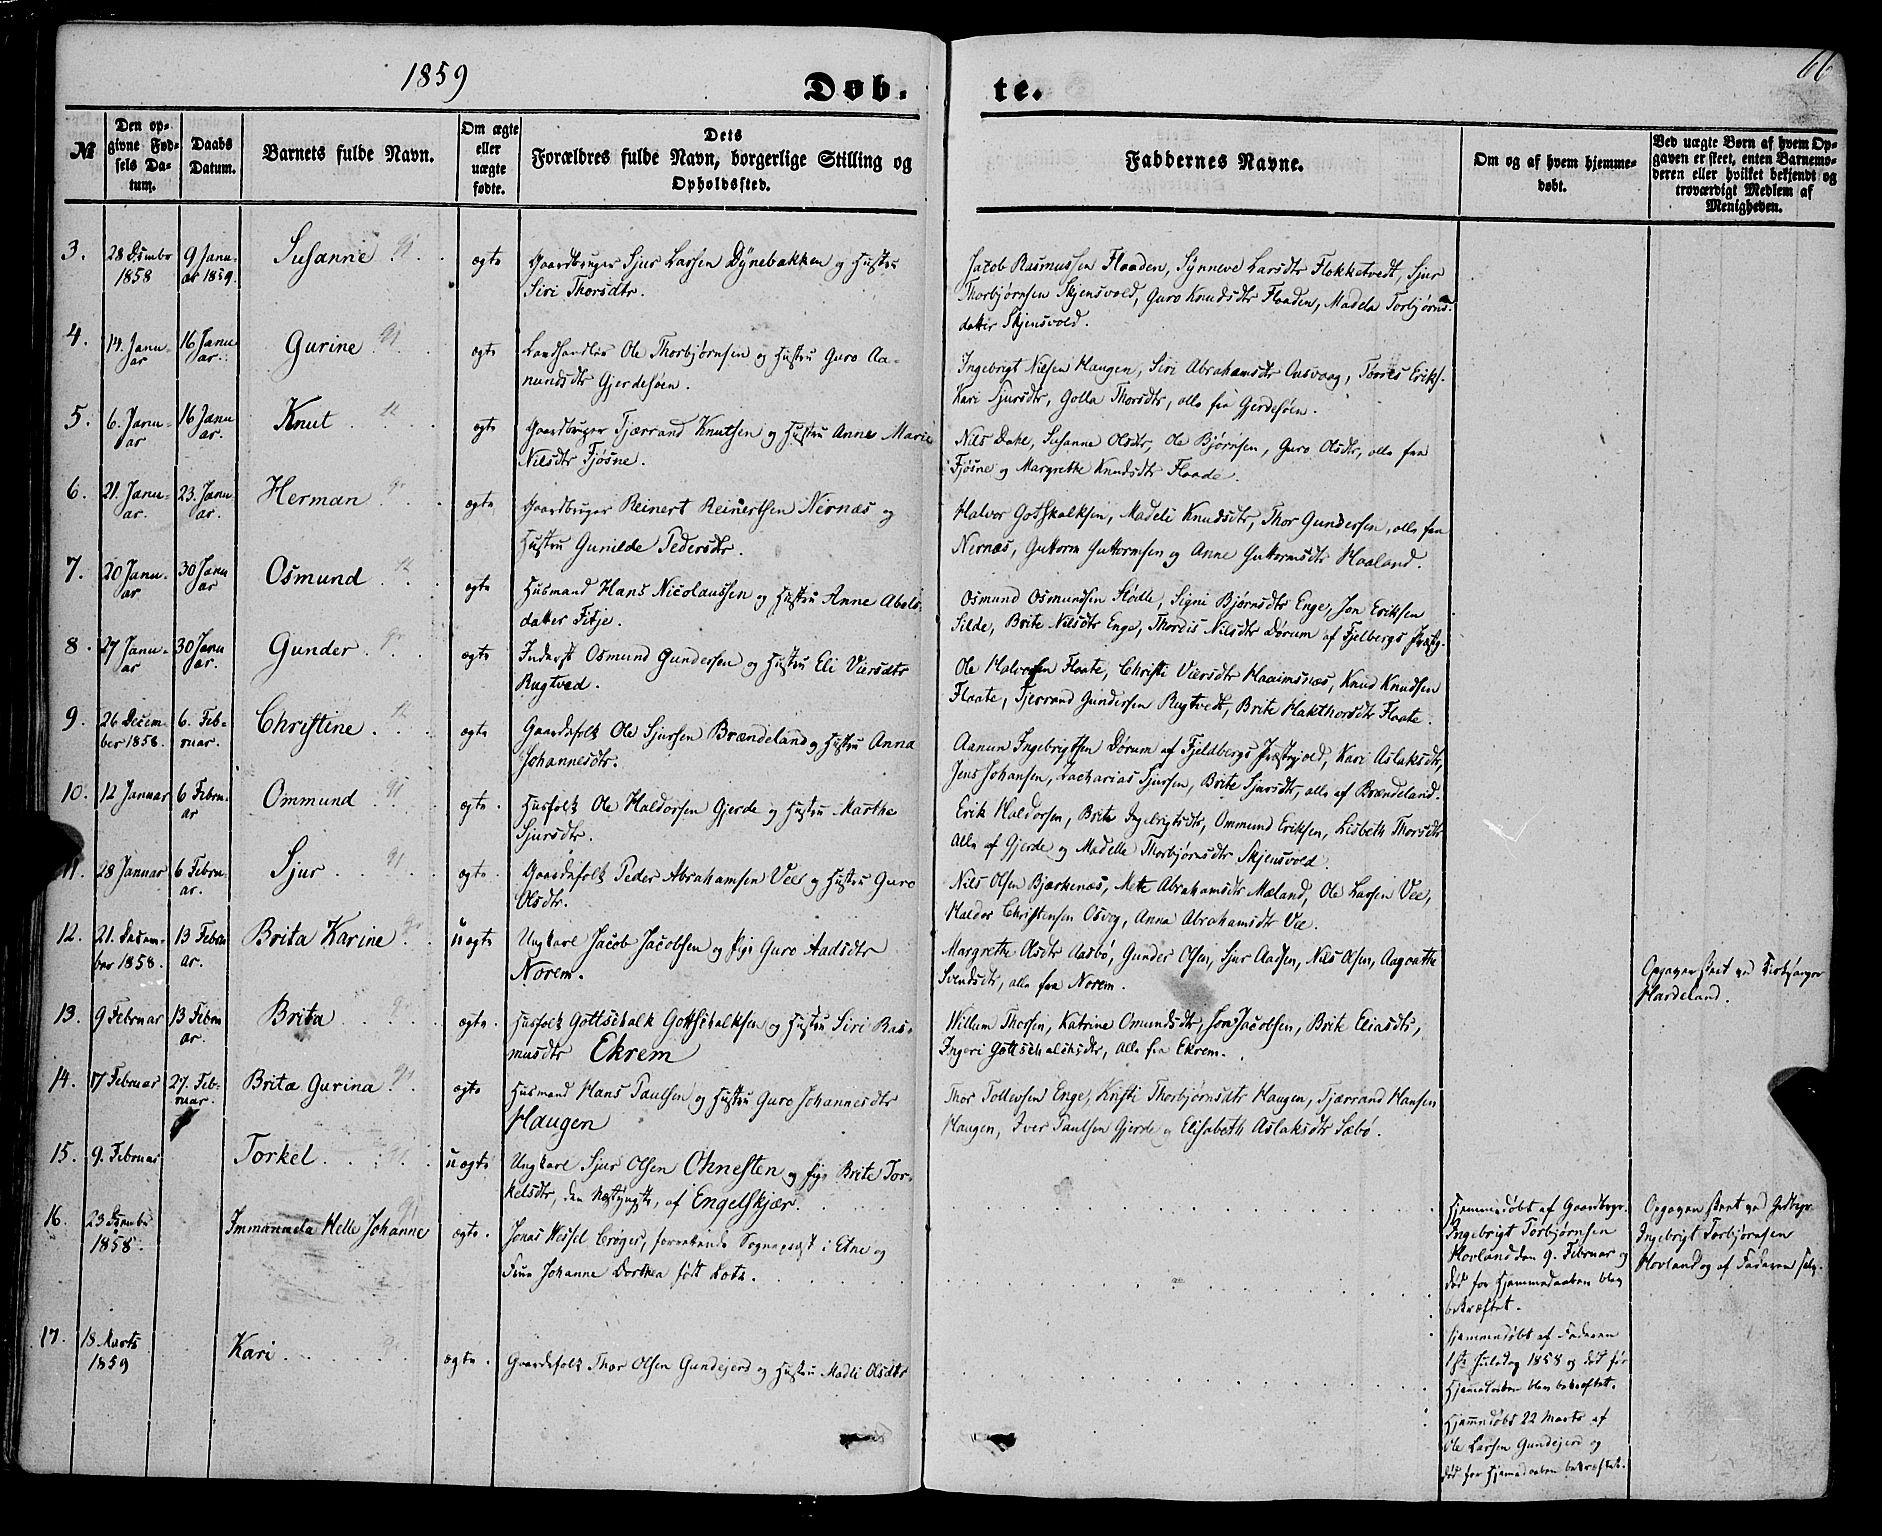 1859
Døb.
te.
66
№
Den op-
givne Fød-
sels Da-
tum.
Daabs
Datum.
Barnets fulde Navn.
Om ægte
eller
uægte
fødte.
Dets
Forældres fulde Navn, borgerlige Stilling og
Opholdssted.
Faddernes Navne.
Om og af hvem hjemme-
døbt.
Ved uægte Børn af hvem Op-
gaven er skeet, enten Barnemo-
deren eller hvilket bekjendt og
troværdigt Medlem af
Menigheden.
3.
28 Dsmbr
1858
9 Janu-
ar 1859.
Susanne
ægte
Gaardbruger Sjur Larsen Dÿnebakken og Hustru
Siri Thorsdtr.
Jacob Rasmussen Flaaden, Synneve Larsdtr Flokketvedt, Sjur
Thorbjørnsen Skjensvold, Guro Knudsdtr Flaaden, Madela Torbjørns-
datter Skjensvold.
4.
14. Janu-
ar
16 Janu
ar.
Gurine
ægte
Landhandler Ole Thorbjørnsen og Hustru Guro Aa-
nundsdtr Gjerdesøen.
Ingebrigt Nilsen Haugen, Siri Abrahamsdtr Onsvaag, Tørres Eriks.
Kari Sjursdtr, Golla Thorsdtr, alle fra Gjerdesøen.
5.
6. Janu-
ar
16 Janu
ar.
Knut
ægte
Gaardbruger Tjærrand Knutsen og Hustru Anne Marie
Nilsdtr Fjøsne.
Nils Dahl, Susanne Olsdtr, Ole Bjørnsen, Guro Olsdtr, alle fra
Fjøsne og Margrethe Knudsdtr Flaade.
6.
21. Janu-
ar.
23. Janu
ar.
Herman
ægte
Gaardbruger Reinert Reinertsen Nernæs og
Hustru Gunilde Pedersdtr.
Halvor Gotskalksen, Madeli Knudsdtr, Thor Gundersen, alle fra
Nernæs, Guttorm Guttormsen og Anne Guttormsdtr Haaland.
7.
20 Janu-
ar
30 Janu
ar
Osmund
ægte
Husmand Hans Nicolaussen og Hustru Anne Abels-
datter Fitje.
Osmund Osmundsen Stødle, Signi Bjørnsdtr Enge, Jon Eriksen
Silde, Brite Nilsdtr Enge, Thordis Nilsdtr Dørum af Fjelbergs Præstg.
8.
27 Janu-
ar
30 Janu
ar.
Gunder
ægte
Inderst Osmund Gundersen og Hustru Eli Viersdtr
Rugtved.
Ole Halvorsen Flaate, Christi Viersdtr Haaimsnæs, Knud Knudsen
Flaate, Tjerrand Gundersen Rugtvedt, Brite Hakthorsdtr Flaate.
9.
26 Decem-
ber 1858.
6. Feb-
ruar.
Christine
ægte
Gaardsfolk Ole Sjursen Brændeland og Hustru Anna
Johannesdtr.
Aanun Ingebrigtsen Dørum af Fjeldbergs Præstegjeld, Kari Aslaksdtr,
Jens Johansen, Zacharias Sjursen, Brite Sjursdtr, alle af Brændeland.
10.
12 Januar
6 Febru-
ar
Ommund
ægte.
Husfolk Ole Haldorsen Gjerde og Hustru Marthe
Sjursdtr.
Erik Haldorsen, Brite Ingebrigtsdtr, Ommund Eriksen, Lisbeth Thorsdtr
Alle af Gjerde og Madelle Thorbjørnsdtr Skjensvold.
11.
28 Januar
6 Febru-
ar.
Sjur
ægte.
Gaardsfolk Peder Abrahamsen Vee og Hustru Guro
Olsdtr.
Nils Olsen Bjærkenæs, Mette Abrahamsdtr Mæland, Ole Larsen Vee,
Haldor Christensen Osvog, Anna Abrahamsdtr Vee.
12.
21. Decem-
ber 1858.
13 Febru
ar.
Brita Karine
uægte
Ungkarl Jacob Jacobsen og Pige Guro Aadsdtr
Norem.
Margrethe Olsdtr Aasbø, Gunder Olsen, Sjur Aasen, Nils Olsen, Aagoathe
Svendsdtr, alle fra Norem.
Opgaven skeet ved
Hardeland.
13.
9 Februar
13 Febru
ar.
Brita
ægte.
Husfolk Gottschalk Gottschalksen og Hustru Siri Ras-
musdtr Ekrem
Willum Thorsen, Katrine Omundsdtr, Jon Jacobsen, Brite Eliasdtr,
Ingeri Gottschalchsdtr, alle fra Ekrem.
14.
17 Februar
27. Feb-
ruar.
Brita Gurina
ægte
Husmand Hans Paulsen og Hustru Guro Johannesdtr
Haugen
Thor Tollevsen Enge, Kristi Thorbjørnsdtr Haugen, Tjærrand Hansen
Haugen, Iver Paulsen Gjerde og Elisabeth Aslaksdtr Sæbø.
15.
9. Februar
Torkel
uægte
Ungkarl Sjur Olsen Ohnesten og Pige Brite Tor-
kelsdtr, den Næstyngste, af Engelskjær.
Hjemmedøbt af Gaardbrgr.
Ingebrigt Torbjørnsen
Hovland den 9. Februar og
død før Hjemmedaaben blev
bekræftet.
Opgaven skeet ved
Ingebrigt Torbjørnsen
Hovland og af Faderen selv.
16.
23 Dsmbr
1858.
Immanuela Helle Johanne
ægte.
Jonas Wessel Crøger, forrettende Sognepræst i Etne og
Frue Johanne Dorthea født Kota.
Hjemmedøbt af Faderen
1ste Juledag 1858 og død før
Hjemedaaben blev bekræftet.
17.
18. Marts
1859
Kari
ægte.
Gaardsfolk Thor Olsen Gundejerd og Hustru Madli Olsdtr
Hjemmedøbt 22 Marts af
Ole Larsen Gundejerd og
død før Hjemedaaben bekræftet.